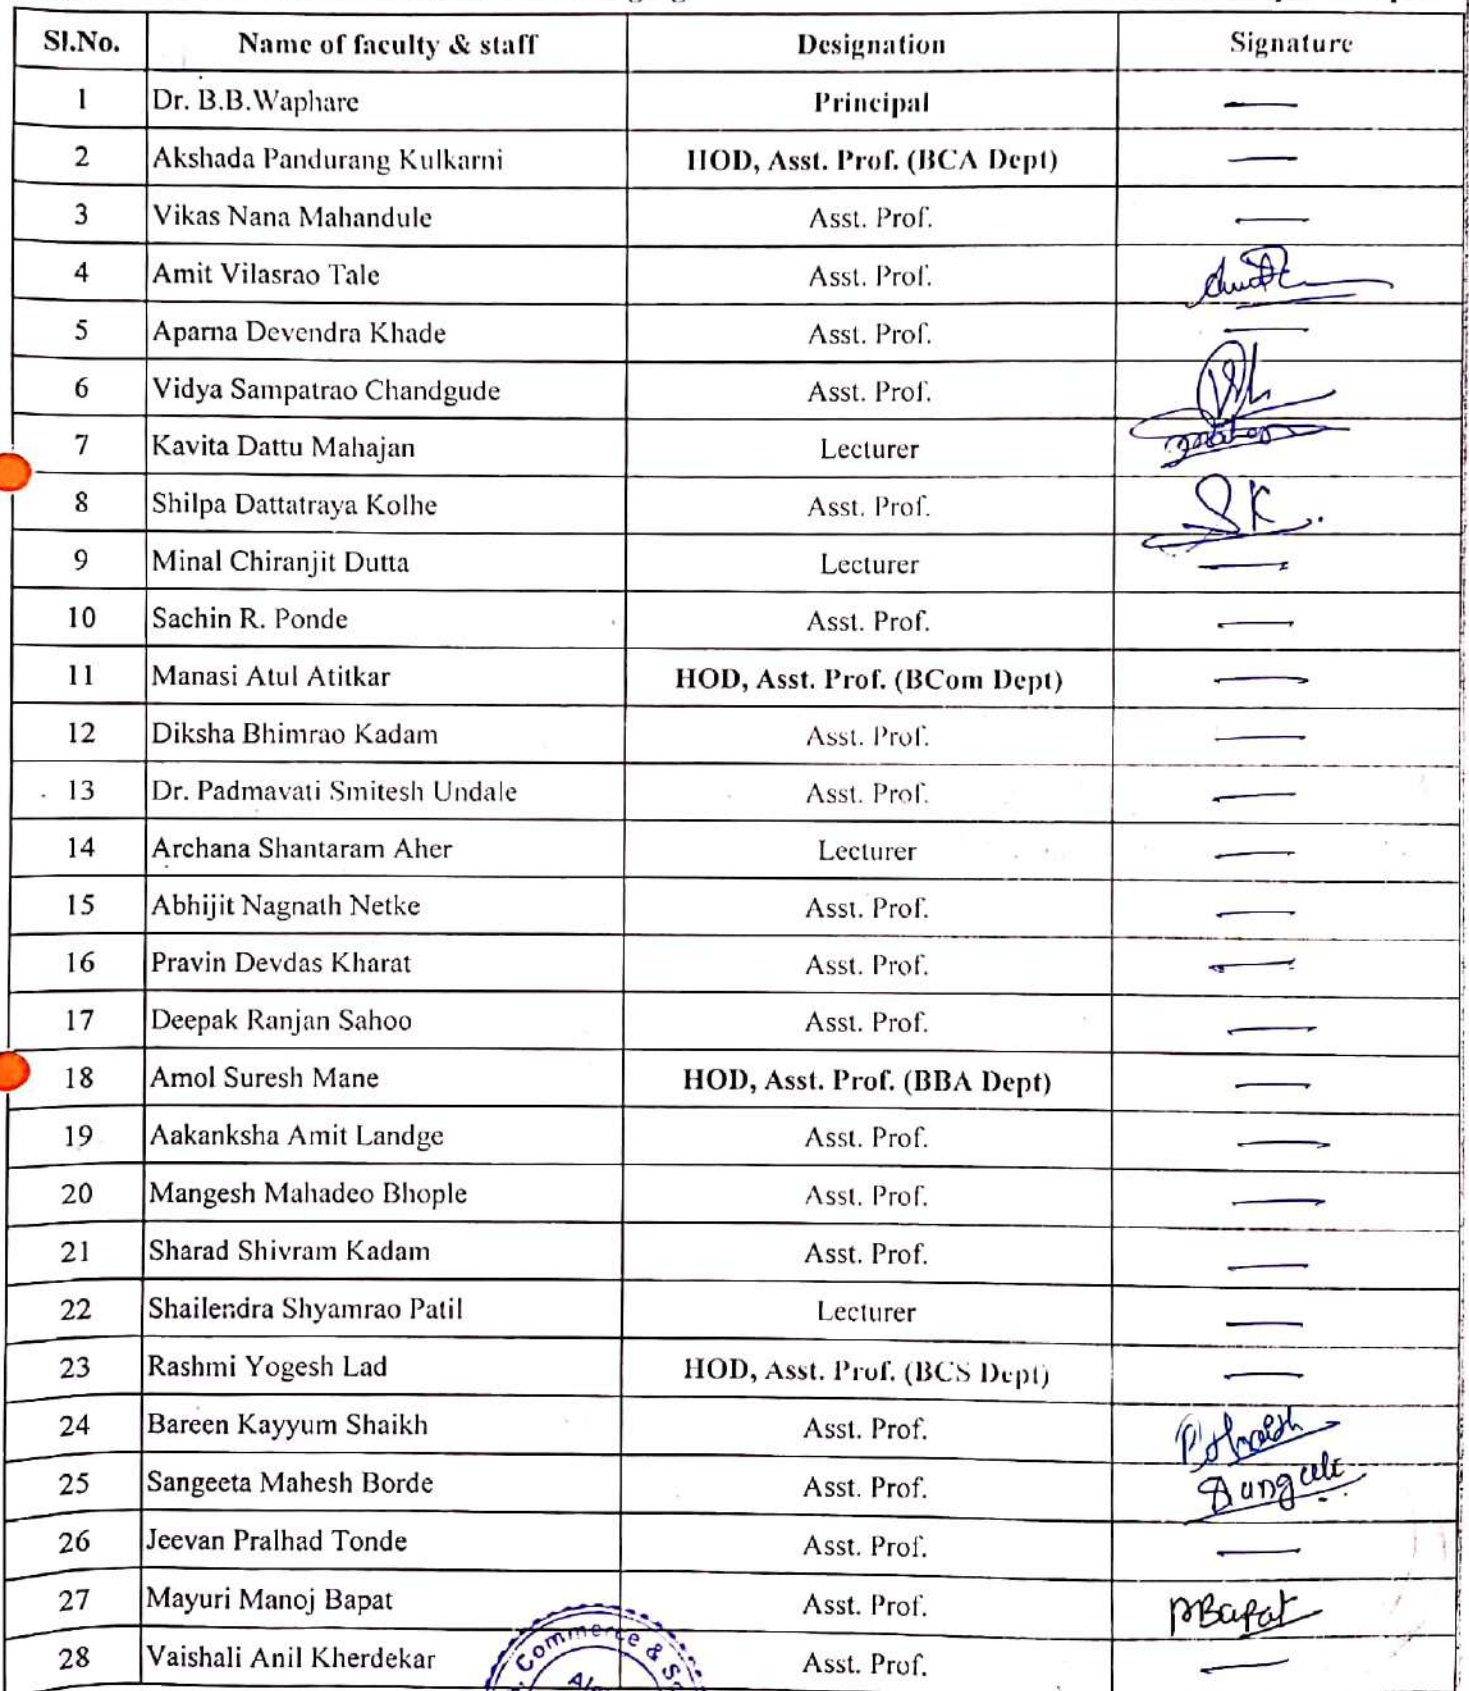 Sl.No. Name of faculty & staff Designation Signature
1 Dr. B.B.Waphare Principal —
2 Akshada Pandurang Kulkarni HOD, Asst. Prof. (BCA Dept) —
3 Vikas Nana Mahandule Asst. Prof. —
4 Amit Vilasrao Tale Asst. Prof.
5 Aparna Devendra Khade Asst. Prof. —
6 Vidya Sampatrao Chandgude Asst. Prof.
7 Kavita Dattu Mahajan Lecturer
8 Shilpa Dattatraya Kolhe Asst. Prof. SK.
9 Minal Chiranjit Dutta Lecturer —
10 Sachin R. Ponde Asst. Prof. —
11 Manasi Atul Atitkar HOD, Asst. Prof. (BCom Dept) —
12 Diksha Bhimrao Kadam Asst. Prof. —
13 Dr. Padmavati Smitesh Undale Asst. Prof. —
14 Archana Shantaram Aher Lecturer —
15 Abhijit Nagnath Netke Asst. Prof. —
16 Pravin Devdas Kharat Asst. Prof. —
17 Deepak Ranjan Sahoo Asst. Prof. —
18 Amol Suresh Mane HOD, Asst. Prof. (BBA Dept) —
19 Aakanksha Amit Landge Asst. Prof. —
20 Mangesh Mahadeo Bhople Asst. Prof. —
21 Sharad Shivram Kadam Asst. Prof. —
22 Shailendra Shyamrao Patil Lecturer —
23 Rashmi Yogesh Lad HOD, Asst. Prof. (BCS Dept) —
24 Bareen Kayyum Shaikh Asst. Prof.
25 Sangeeta Mahesh Borde Asst. Prof.
26 Jeevan Pralhad Tonde Asst. Prof. —
27 Mayuri Manoj Bapat Asst. Prof. MBapat
28 Vaishali Anil Kherdekar Asst. Prof. —
Commerce &